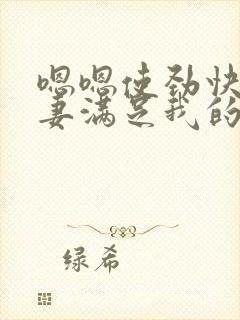 嗯嗯使劲快
妻满足我的
绿希